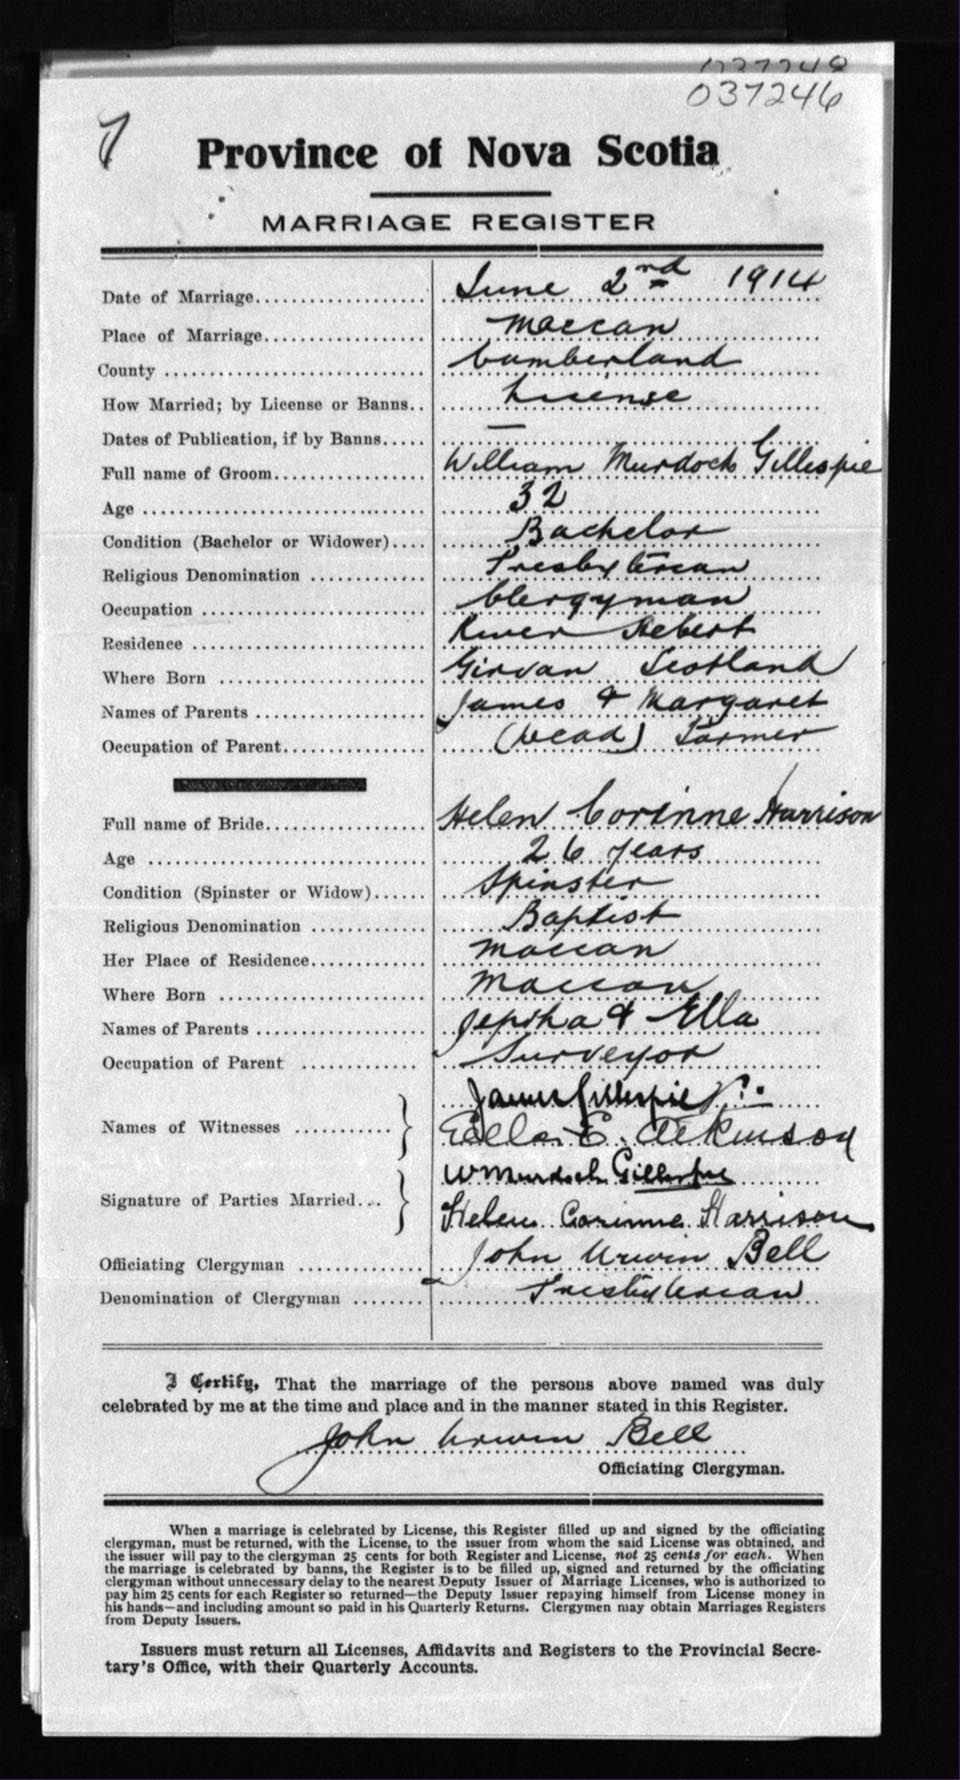 037246
7
Province of Nova Scotia
MARRIAGE REGISTER
Date of Marriage.................... June 2nd 1914
Place of Marriage................... Maccan
County ........................... Cumberland
How Married; by License or Banns.. License
Dates of Publication, if by Banns..... —
Full name of Groom.................. William Murdoch Gillespie
Age ............................. 32
Condition (Bachelor or Widower).... Bachelor
Religious Denomination ............. Presbyterian
Occupation ........................ Clergyman
Residence ......................... River Hebert
Where Born ...................... Girvan Scotland
Names of Parents .................. James & Margaret
Occupation of Parent................ (Dead) Farmer
Full name of Bride.................. Helen Corinne Harrison
Age ............................. 26 years
Condition (Spinster or Widow)...... Spinster
Religious Denomination ............. Baptist
Her Place of Residence.............. Maccan
Where Born ...................... Maccan
Names of Parents .................. Jeptha & Ella
Occupation of Parent .............. Surveyor
Names of Witnesses ........... James Gillespie Jr.
Ella E. Atkinson
Signature of Parties Married... W Murdoch Gillespie
Helen Corinne Harrison
Officiating Clergyman ............... John Urwin Bell
Denomination of Clergyman ........ Presbyterian
I Certify, That the marriage of the persons above named was duly
celebrated by me at the time and place and in the manner stated in this Register.
John Urwin Bell
Officiating Clergyman.
When a marriage is celebrated by License, this Register filled up and signed by the officiating
clergyman, must be returned, with the License, to the issuer from whom the said License was obtained, and
the issuer will pay to the clergyman 25 cents for both Register and License, not 25 cents for each. When
the marriage is celebrated by banns, the Register is to be filled up, signed and returned by the officiating
clergyman without unnecessary delay to the nearest Deputy Issuer of Marriage Licenses, who is authorized to
pay him 25 cents for each Register so returned—the Deputy Issuer repaying himself from License money in
his hands—and including amount so paid in his Quarterly Returns. Clergymen may obtain Marriages Registers
from Deputy Issuers.
Issuers must return all Licenses, Affidavits and Registers to the Provincial Secre-
tary's Office, with their Quarterly Accounts.